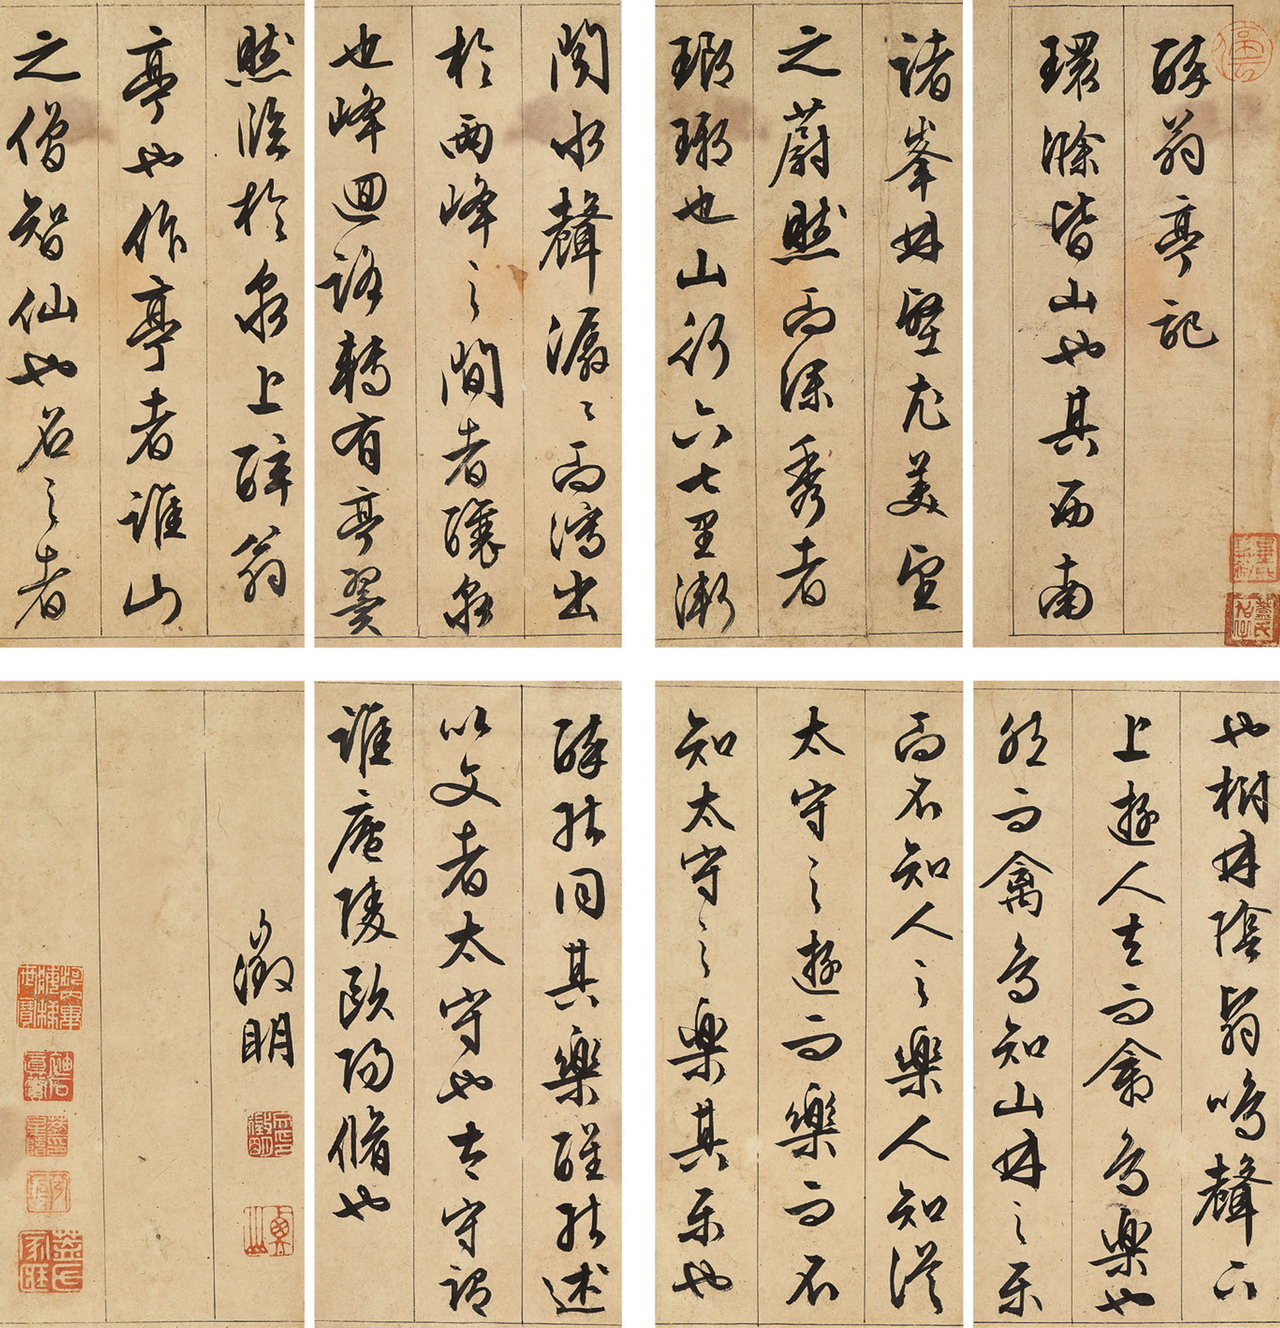 醉翁亭記
環滁皆山也其西南
諸峯林壑尤美望
之蔚然而深秀者
瑯琊也山行六七里漸
聞水聲潺〻而瀉出
於兩峰之間者釀泉
也峰迴路轉有亭翼
然臨於泉上醉翁
亭也作亭者誰山
之僧智仙也名之者
也樹林陰翳鳴聲下
上遊人去而禽鳥樂也
然而禽鳥知山林之樂
而不知人之樂人知從
太守之遊而樂而不
知太守之樂其樂也
醉能同其樂醒能述
以文者太守也太守謂
誰廬陵歐陽脩也
徵明
徵明